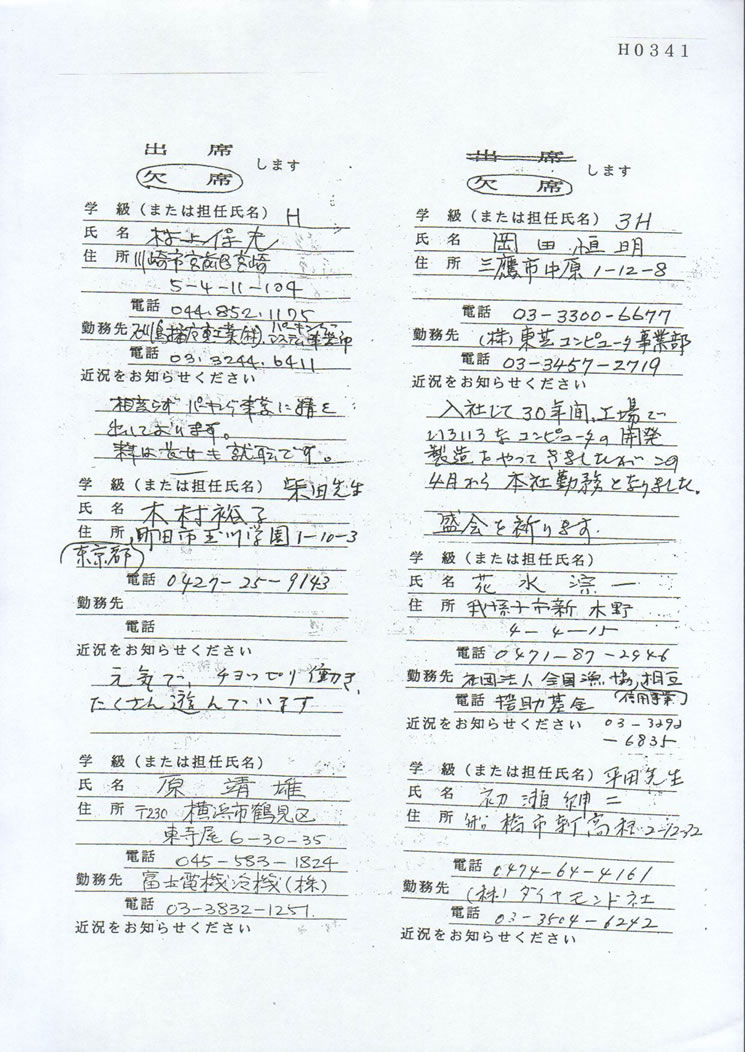 H0341
出席
欠席 します
学級（または担任氏名） H
氏名 村上保
住所 川崎市宮前区宮崎
5-4-11-104
電話 044.852.1175
勤務先
電話 03.3244.6411
近況をお知らせください
相変らずパーキング事業に精を
出しております。
長女も就職です。
学級（または担任氏名） 柴田先生
氏名 木村裕子
住所 町田市玉川学園1-10-3
東京都
電話 0427-25-9143
勤務先
電話
近況をお知らせください
元気で、チョッピリ働き
たくさん遊んでいます
学級（または担任氏名）
氏名 原 靖雄
住所 〒230 横浜市鶴見区
東寺尾6-30-35
電話 045-583-1824
勤務先 富士電機冷機(株)
電話 03-3832-1251
近況をお知らせください
出席
欠席 します
学級（または担任氏名） 3H
氏名 岡田恒明
住所 三鷹市中原1-12-8
電話 03-3300-6677
勤務先 (株)東芝コンピュータ事業部
電話 03-3457-2719
近況をお知らせください
入社して30年間、工場で
いろいろなコンピュータの開発
製造をやってきましたがこの
4月から本社勤務となりました。
盛会を祈ります
学級（または担任氏名）
氏名 花水涼一
住所 我孫子市新木野
4-4-15
電話 0471-87-2946
勤務先 社団法人全国漁協相互
電話 援助基金 (信用事業)
近況をお知らせください 03-3292
-6835
学級（または担任氏名） 平田先生
氏名 初瀬紳二
住所 船橋市新高根2-12-32
電話 0474-64-4161
勤務先 (株)ダイヤモンド社
電話 03-3504-6242
近況をお知らせください